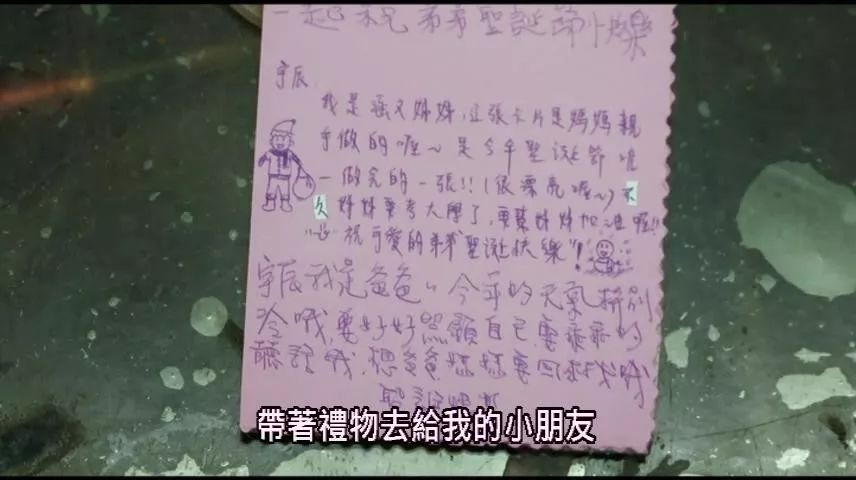 一起祝弟弟聖誕節快樂
宇辰
我是涵文姊姊,這張卡片是媽媽親
手做的喔~是今年聖誕節唯
一做完的一張!!(很漂亮喔~)不
久姊姊要考大學了,要幫姊姊加油喔!!
祝可愛的弟弟"聖誕快樂"!
宇辰我是爸爸,今年的天氣特別
冷哦,要好好照顧自己要乖乖的
聽話哦,想爸爸媽媽要回來找哦
聖誕快樂
帶著禮物去給我的小朋友